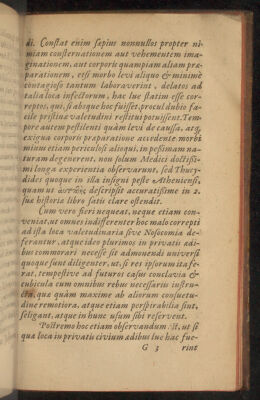 di. Constat enim sæpius nonnullos propter ni-
miam consternationem aut vehementem ima-
ginationem, aut corporis quampiam aliam præ-
parationem, etsi morbo levi aliquo & minimè
contagioso tantum laboraverint, delatos ad
talia loca infectorum, hac lue statim esse cor-
reptos, qui, si absque hoc fuisset, procul dubio fa-
cile pristinæ valetudini restitui potuissent. Tem-
pore autem pestilenti quàm levi de caussa, atq̃
exigua corporis præparatione accedente morbi
mitium etiam periculosi alioqui, in pessimam na-
turam degenerent, non solum Medici doctissi-
mi longa experientia observarunt, sed Thucy-
dides quoque in illa insigni peste Atheniensi,
quam ut descripsit accuratissime in 2.
suæ historiæ libro satis clare ostendit.
Cum vero fieri nequeat, neque etiam con-
veniat, ut omnes indifferenter hoc malo correpti
ad ista loca valetudinaria sive Nosocomia de-
ferantur, atque ideo plurimos in privatis ædi-
bus commorari necesse sit admonendi universi
quoque sunt diligenter, ut, si res ipsorum ita fe-
rat, tempestive ad futuros casus conclavia &
cubicula cum omnibus rebus necessariis instru-
cta, quæ quàm maxime ab aliorum consuetu-
dine remotiora, atque etiam perspirabilia sint,
seligant, atque in hunc usum sibi reservent.
Postremo hoc etiam observandum est, ut si
qua loca in privatis civium ædibus lue hac fue-
G 3 rint